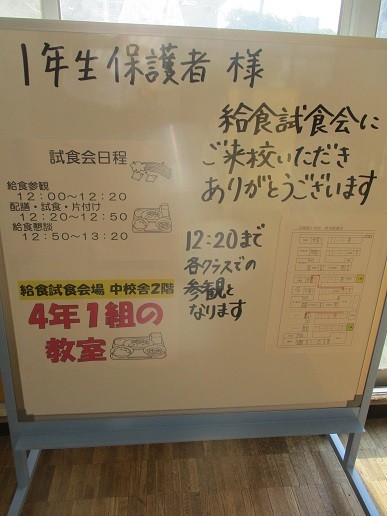 1年生保護者 様
給食試食会に
ご来校いただき
ありがとうございます
試食会日程
給食参観
12:00～12:20
配膳・試食・片付け
12:20～12:50
給食懇談
12:50～13:20
12:20まで
各クラスでの
参観と
なります
給食試食会場 中校舎2階
4年1組の
教室